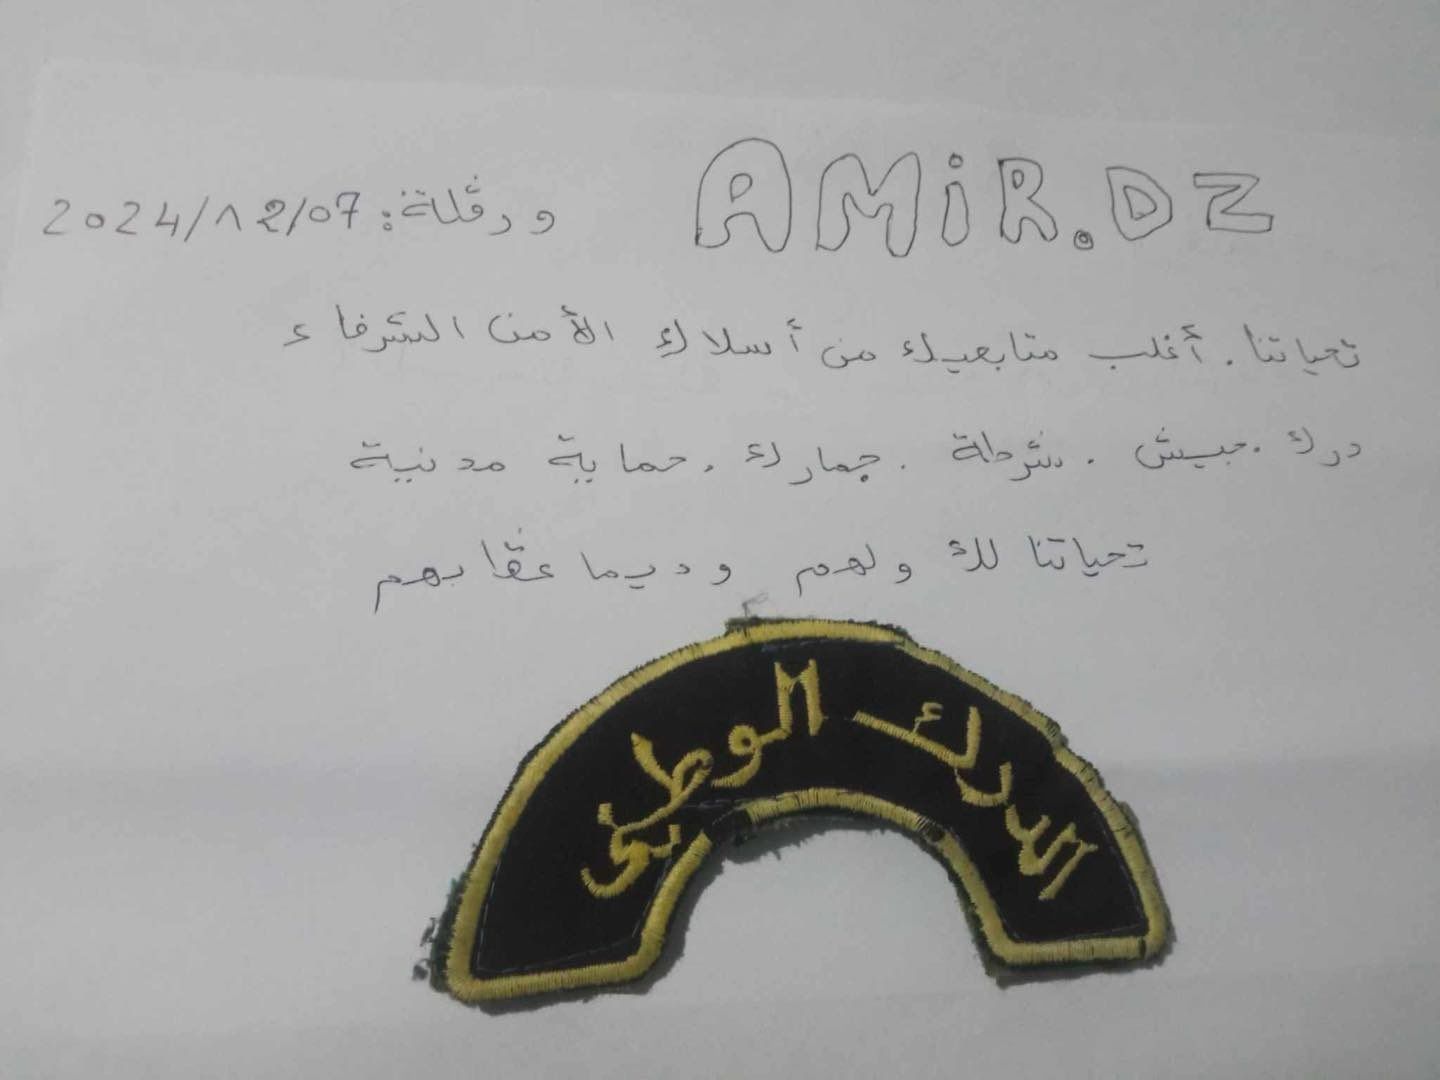 AMiR.DZ
ورڤلة: 2024/12/07
تحياتنا. أغلب متابعيك من أسلاك الأمن الشرفاء
درك. جيش. شرطة. جمارك. حماية مدنية
تحياتنا لك ولهم وديما عڤابهم
الدرك الوطني